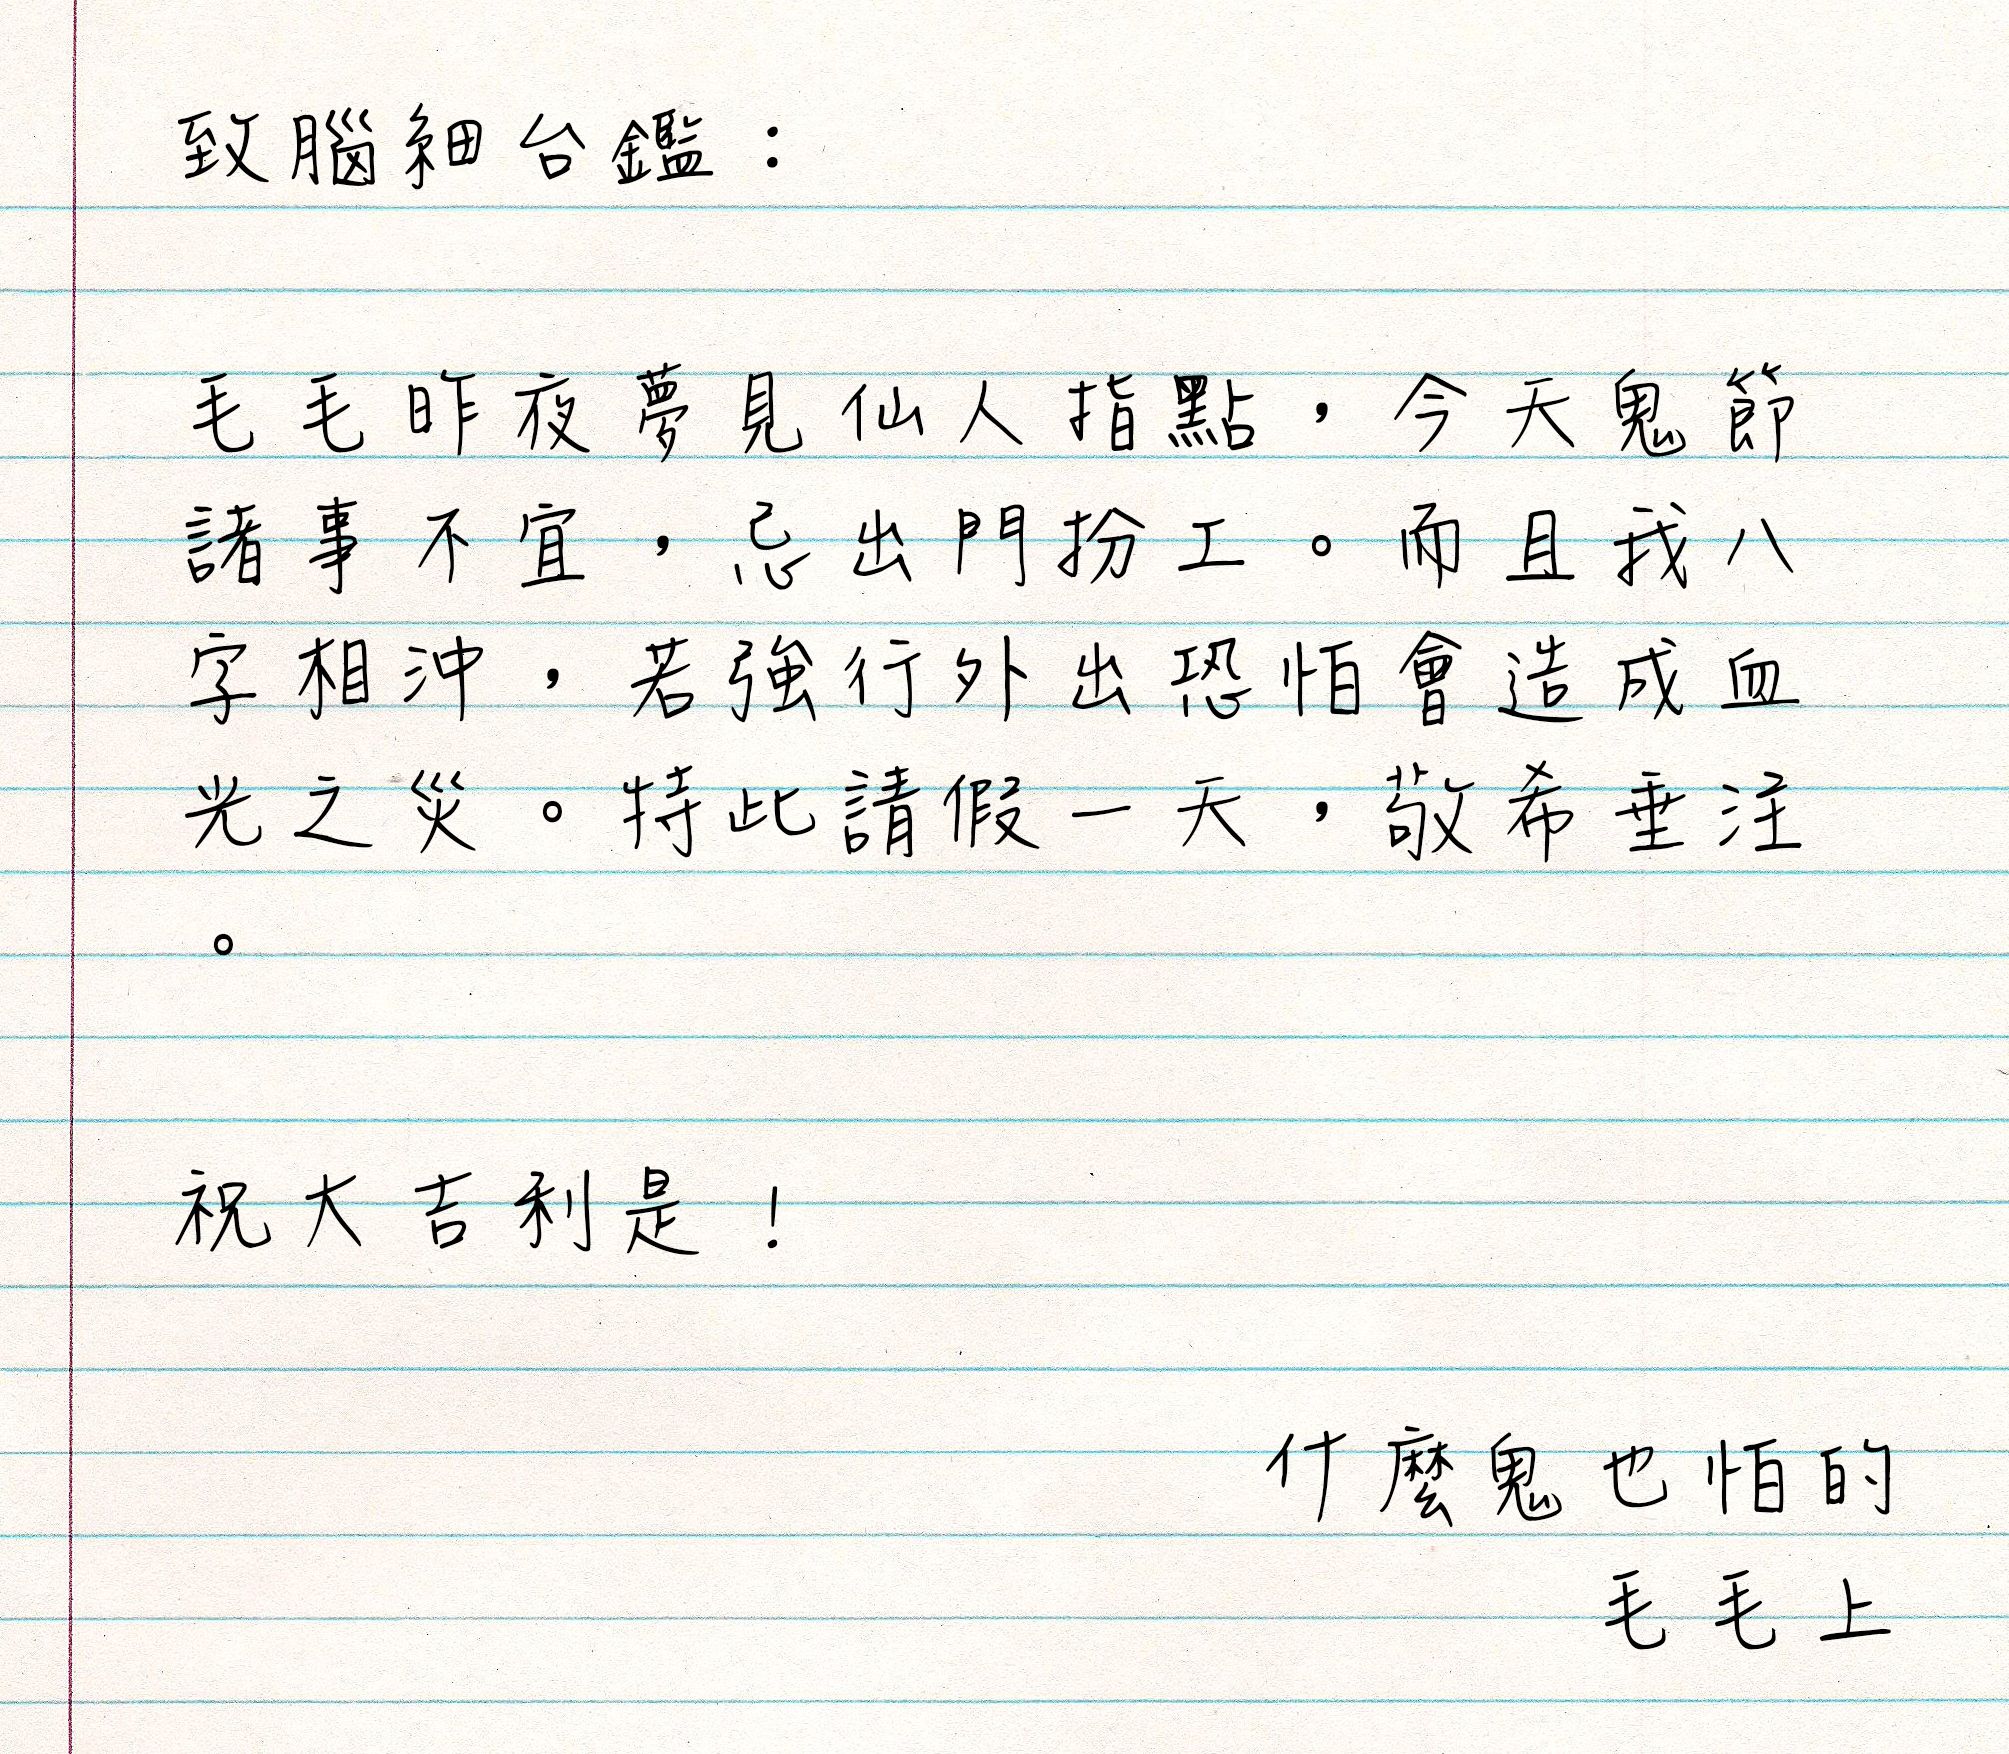 致腦細台鑑：
毛毛昨夜夢見仙人指點，今天鬼節
諸事不宜，忌出門扮工。而且我八
字相沖，若強行外出恐怕會造成血
光之災。特此請假一天，敬希垂注
。
祝大吉利是！
什麼鬼也怕的
毛毛上